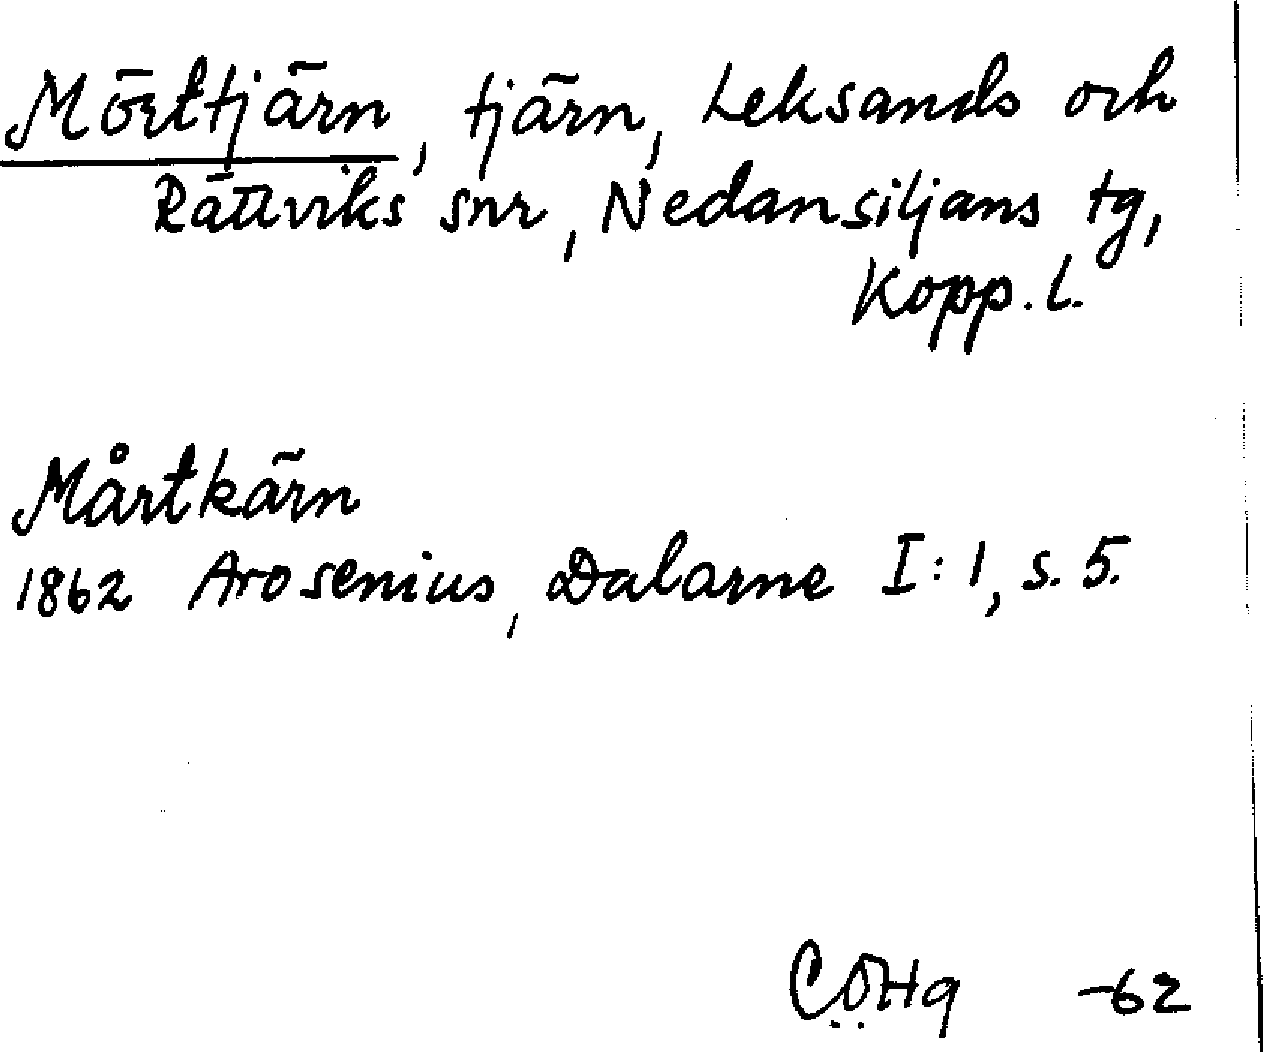 Mörttjärn, tjärn, Leksands och
Rättviks snr, Nedansiljans tg,
Kopp. l.
Mårtkärn
1862 Arosenius, Dalarne I:1, s. 5.
CÖHg -62